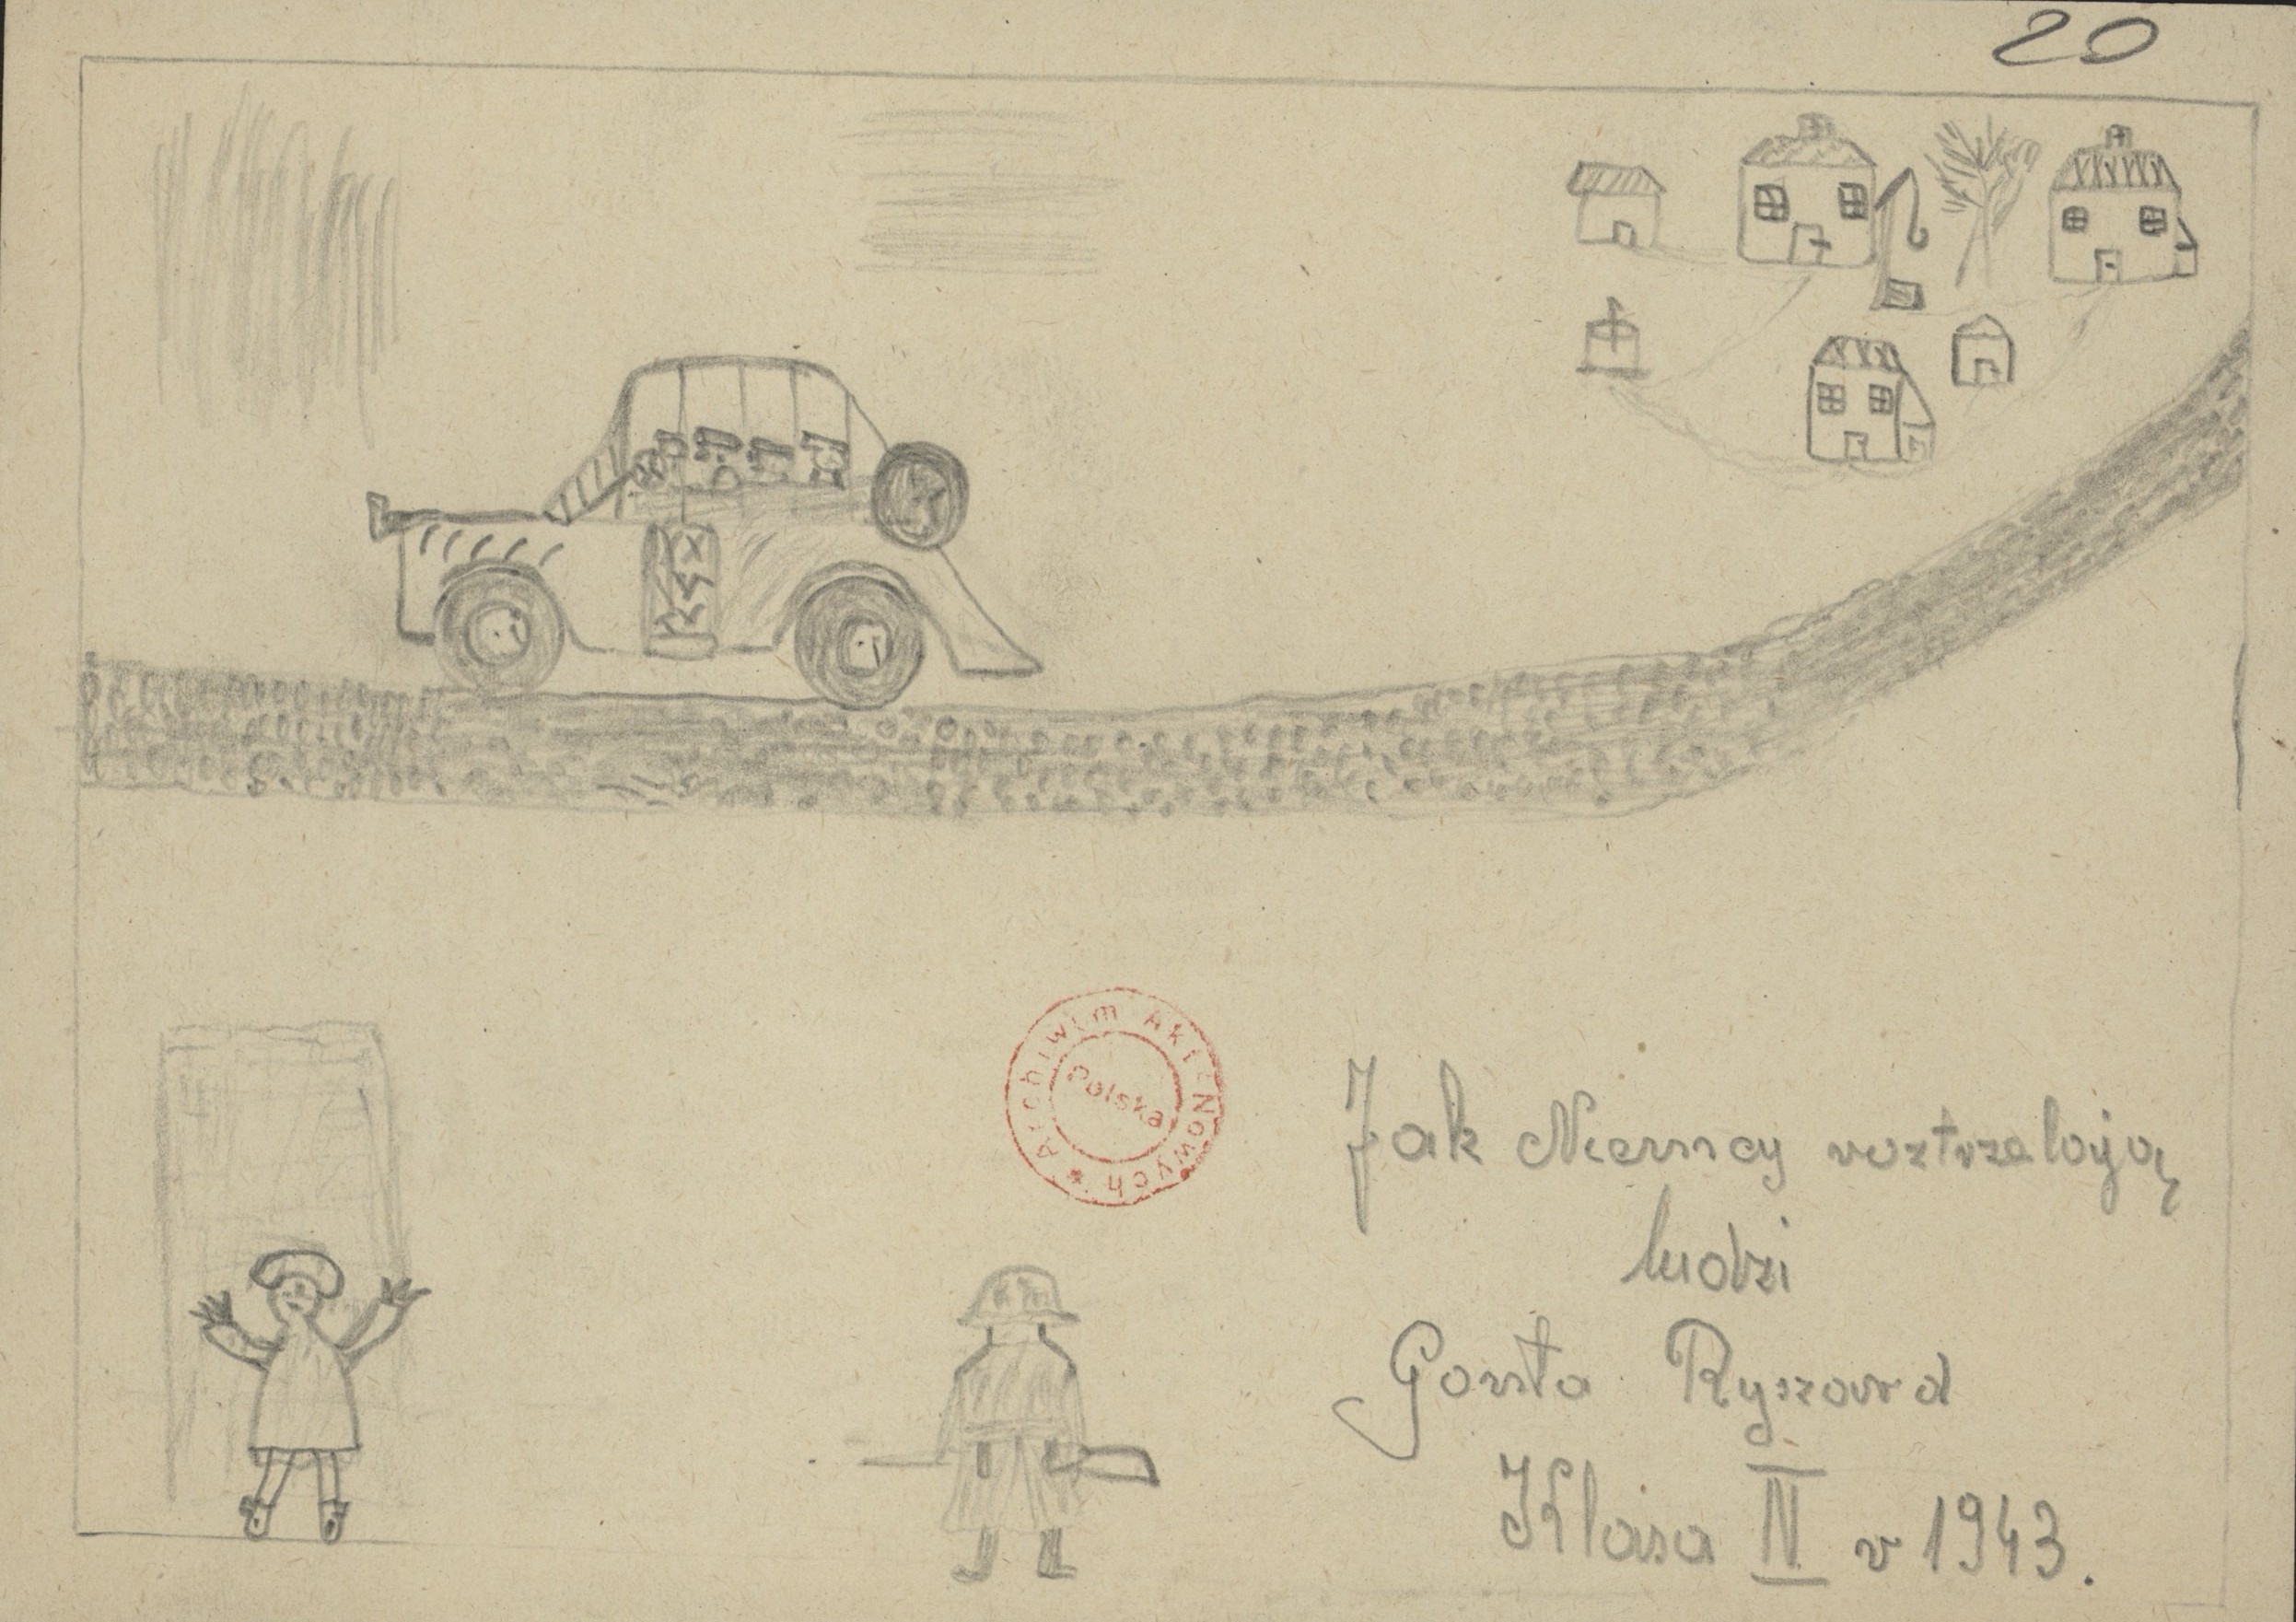 20
Archiwum Akt Nowych *
Polska
Jak Niemcy roztrzelają
ludzi
Gonta Ryszard
Klasa IV r 1943.